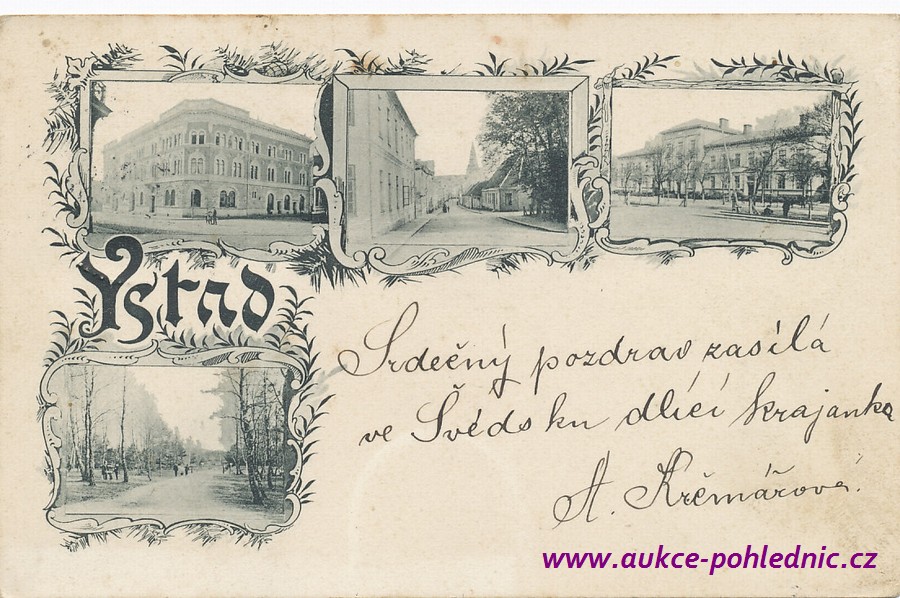 Ystad
Srdečný pozdrav zasílá
ve Švédsku dlící krajanka
A. Krěmářová.
www.aukce-pohlednic.cz